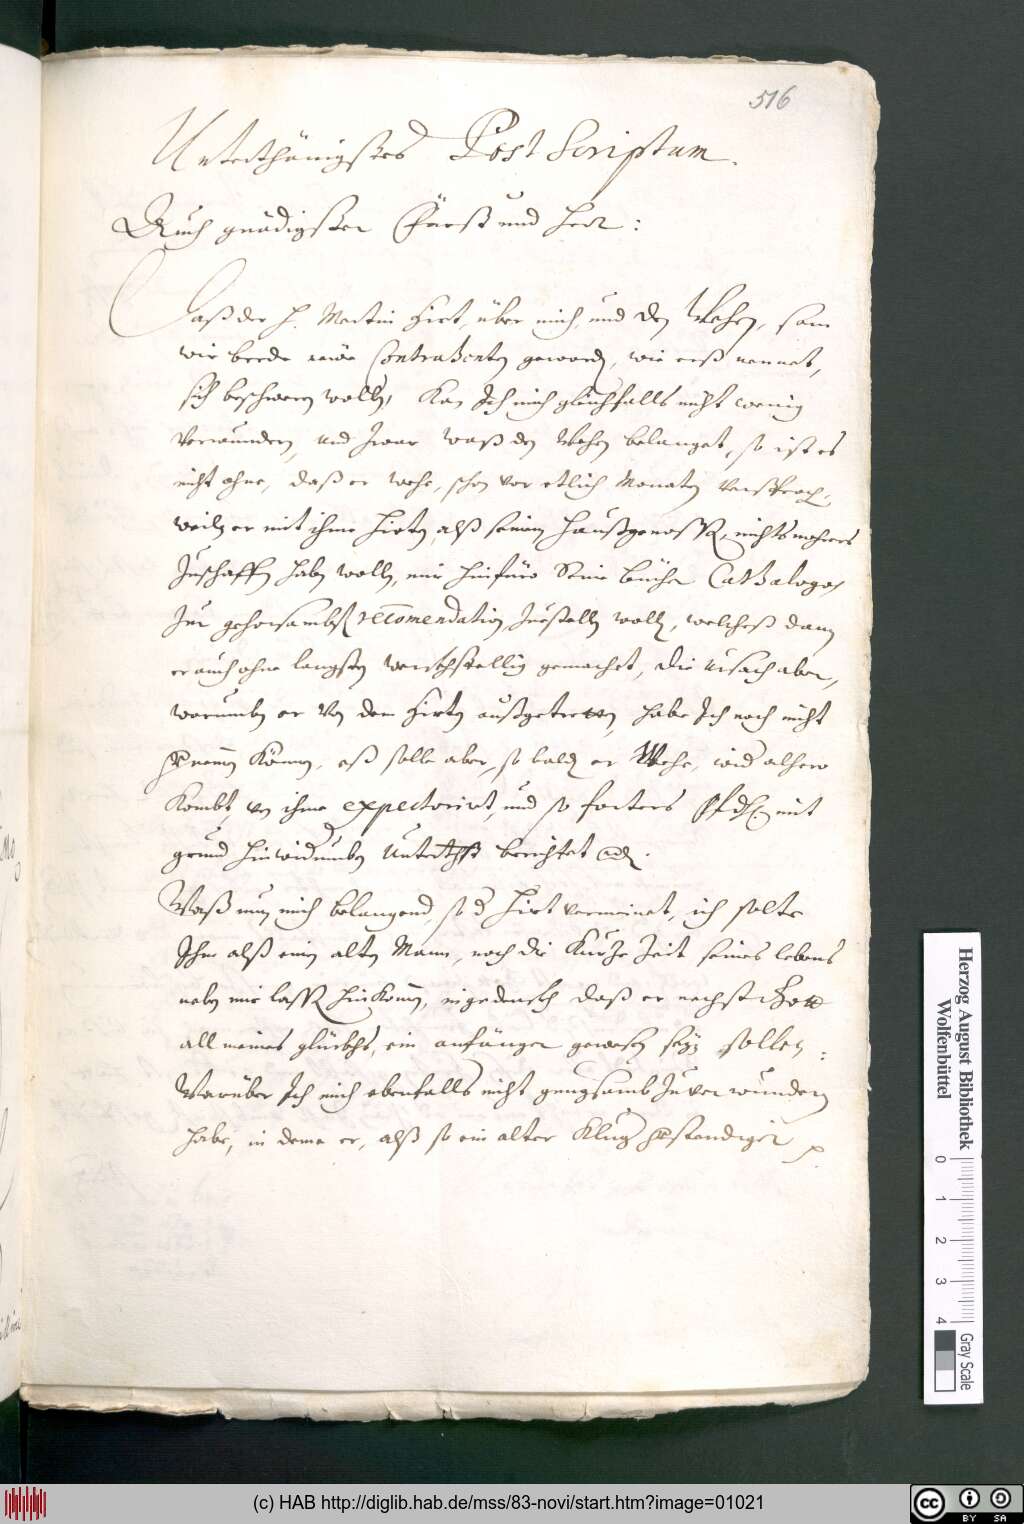 516
Unterthönigstes Post Scriptum.
Auch gnädigster Fürst und Herr:
Daß der H. Martin Hirt, über mich, und den Wehen, sam
wir beede seine Contrahenten geworden, wie erß nennet,
sich beschweren wollen, Kan Ich mich gleichfalls nicht wenig
verwundern, und zwar waß den Wehen belanget, so ist es
nicht ohne, daß er Wehe, schon vor etlich Monaten versprochen,
weilen er mit ihme Hirten, alß seinem Haußgenossen, nichts mehrers
zuschaffen haben wollen, mir hinfüro Seine Bücher Cathalogos
zur gehorsambsten recomendation, zustellen wollen, welcheß dann
er auch ohne langsten werchstellig gemachet, die Ursach aber,
warumben er von dem Hirten außgetretten, habe Ich noch nicht
vernemen Können, eß solle aber, so balden er Wehe, wider alhero
Kombt, von ihme expectorirt, und so forters mit
grund hinwidumben Unterth berichtet werden.
Waß nun mich belangend, so d Hirt vermeinet, ich solte
Ihne alß einen alten Mann, noch die Kurtze Zeit seines lebens
neben mir lassen hinkommen, ingedenckh daß er nechst Gott
all meines glückhs, ein anfänger gewesen seyn sollen:
Warüber Ich mich ebenfalls nicht genugsamb zuverwundern
habe, in deme er, alß so ein alter Klug verstendiger
Herzog August Bibliothek
Wolfenbüttel
0 1 2 3 4
Gray Scale
(c) HAB http://diglib.hab.de/mss/83-novi/start.htm?image=01021
cc BY SA